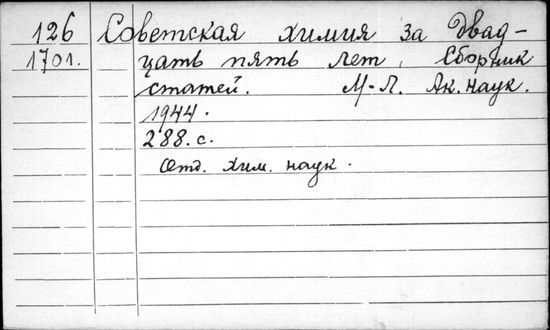 126 Советская химия за двад-
1701. цать пять лет, Сборник
статей. М-Л. Ак. наук.
1944.
288. с.
Отд. Хим. наук.